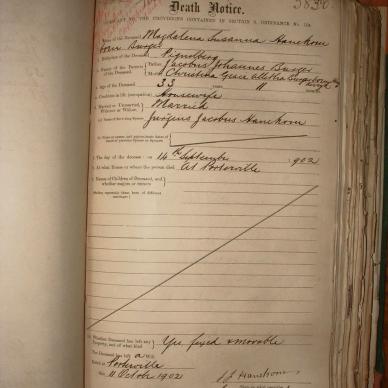 Death Notice.
PURSUANT TO THE PROVISIONS CONTAINED IN SECTION 9, ORDINANCE No. 104
Name of the Deceased Magdalena Susanna Hanekom
born Burger
Birthplace of the Deceased Piquetberg
Names of the Parents of the Deceased Father Jacobus Johannes Burger
Mother Christina Grace Aletha
Age of the Deceased 33 years 11 months
Condition in life (occupation) Housewife
Married or Unmarried, Widower or Widow Married
Name of Surviving Spouse Jurgens Jacobus Hanekom
The day of the decease: on 14th September 1902
At what House or where the person died At Porterville
Names of Children of Deceased, and whether majors or minors
(Stating separately those born of different marriages)
Whether Deceased has left any Property, and of what kind Yes fixed & movable
The Deceased has left a Will.
Dated at Porterville
the 11 October 1902
J J Hanekom